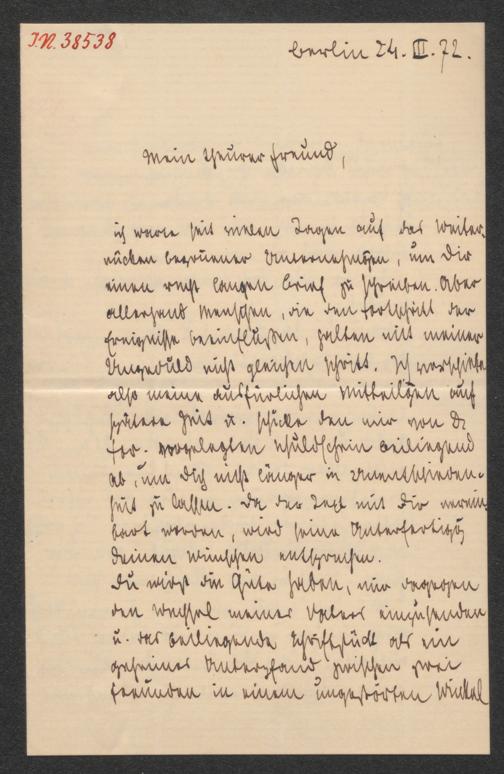 I.N. 38538
Berlin 24. III. 72.
Mein theurer Freund,
ich warte seit vielen Tagen auf das Weiter-
rücken begonnener Unternehmgen, um Dir
einen recht langen Brief zu schreiben. Aber
allerhand Menschen, die den Fortschritt der
Ereignisse beeinflußen, halten mit meiner
Ungeduld nicht gleichen Schritt. Ich verschiebe
also meine ausfürlichen Mittheilgen auf
spätere Zeit u. schicke den mir von
vorgelegten Schuldschein beiliegend
ab, um Dich nicht länger in Unentschieden-
heit zu lassen. Da der Text mit Dir verein-
bart worden, wird seine Unterfertigg
Deinen Wünschen entsprechen.
Du wirst die Güte haben, mir dagegen
den Wechsel meines Vaters einzusenden
u. das beiliegende Schriftstück als ein
geheimes Unterpfand zwischen zwei
Freunden in einem ungestörten Winkel